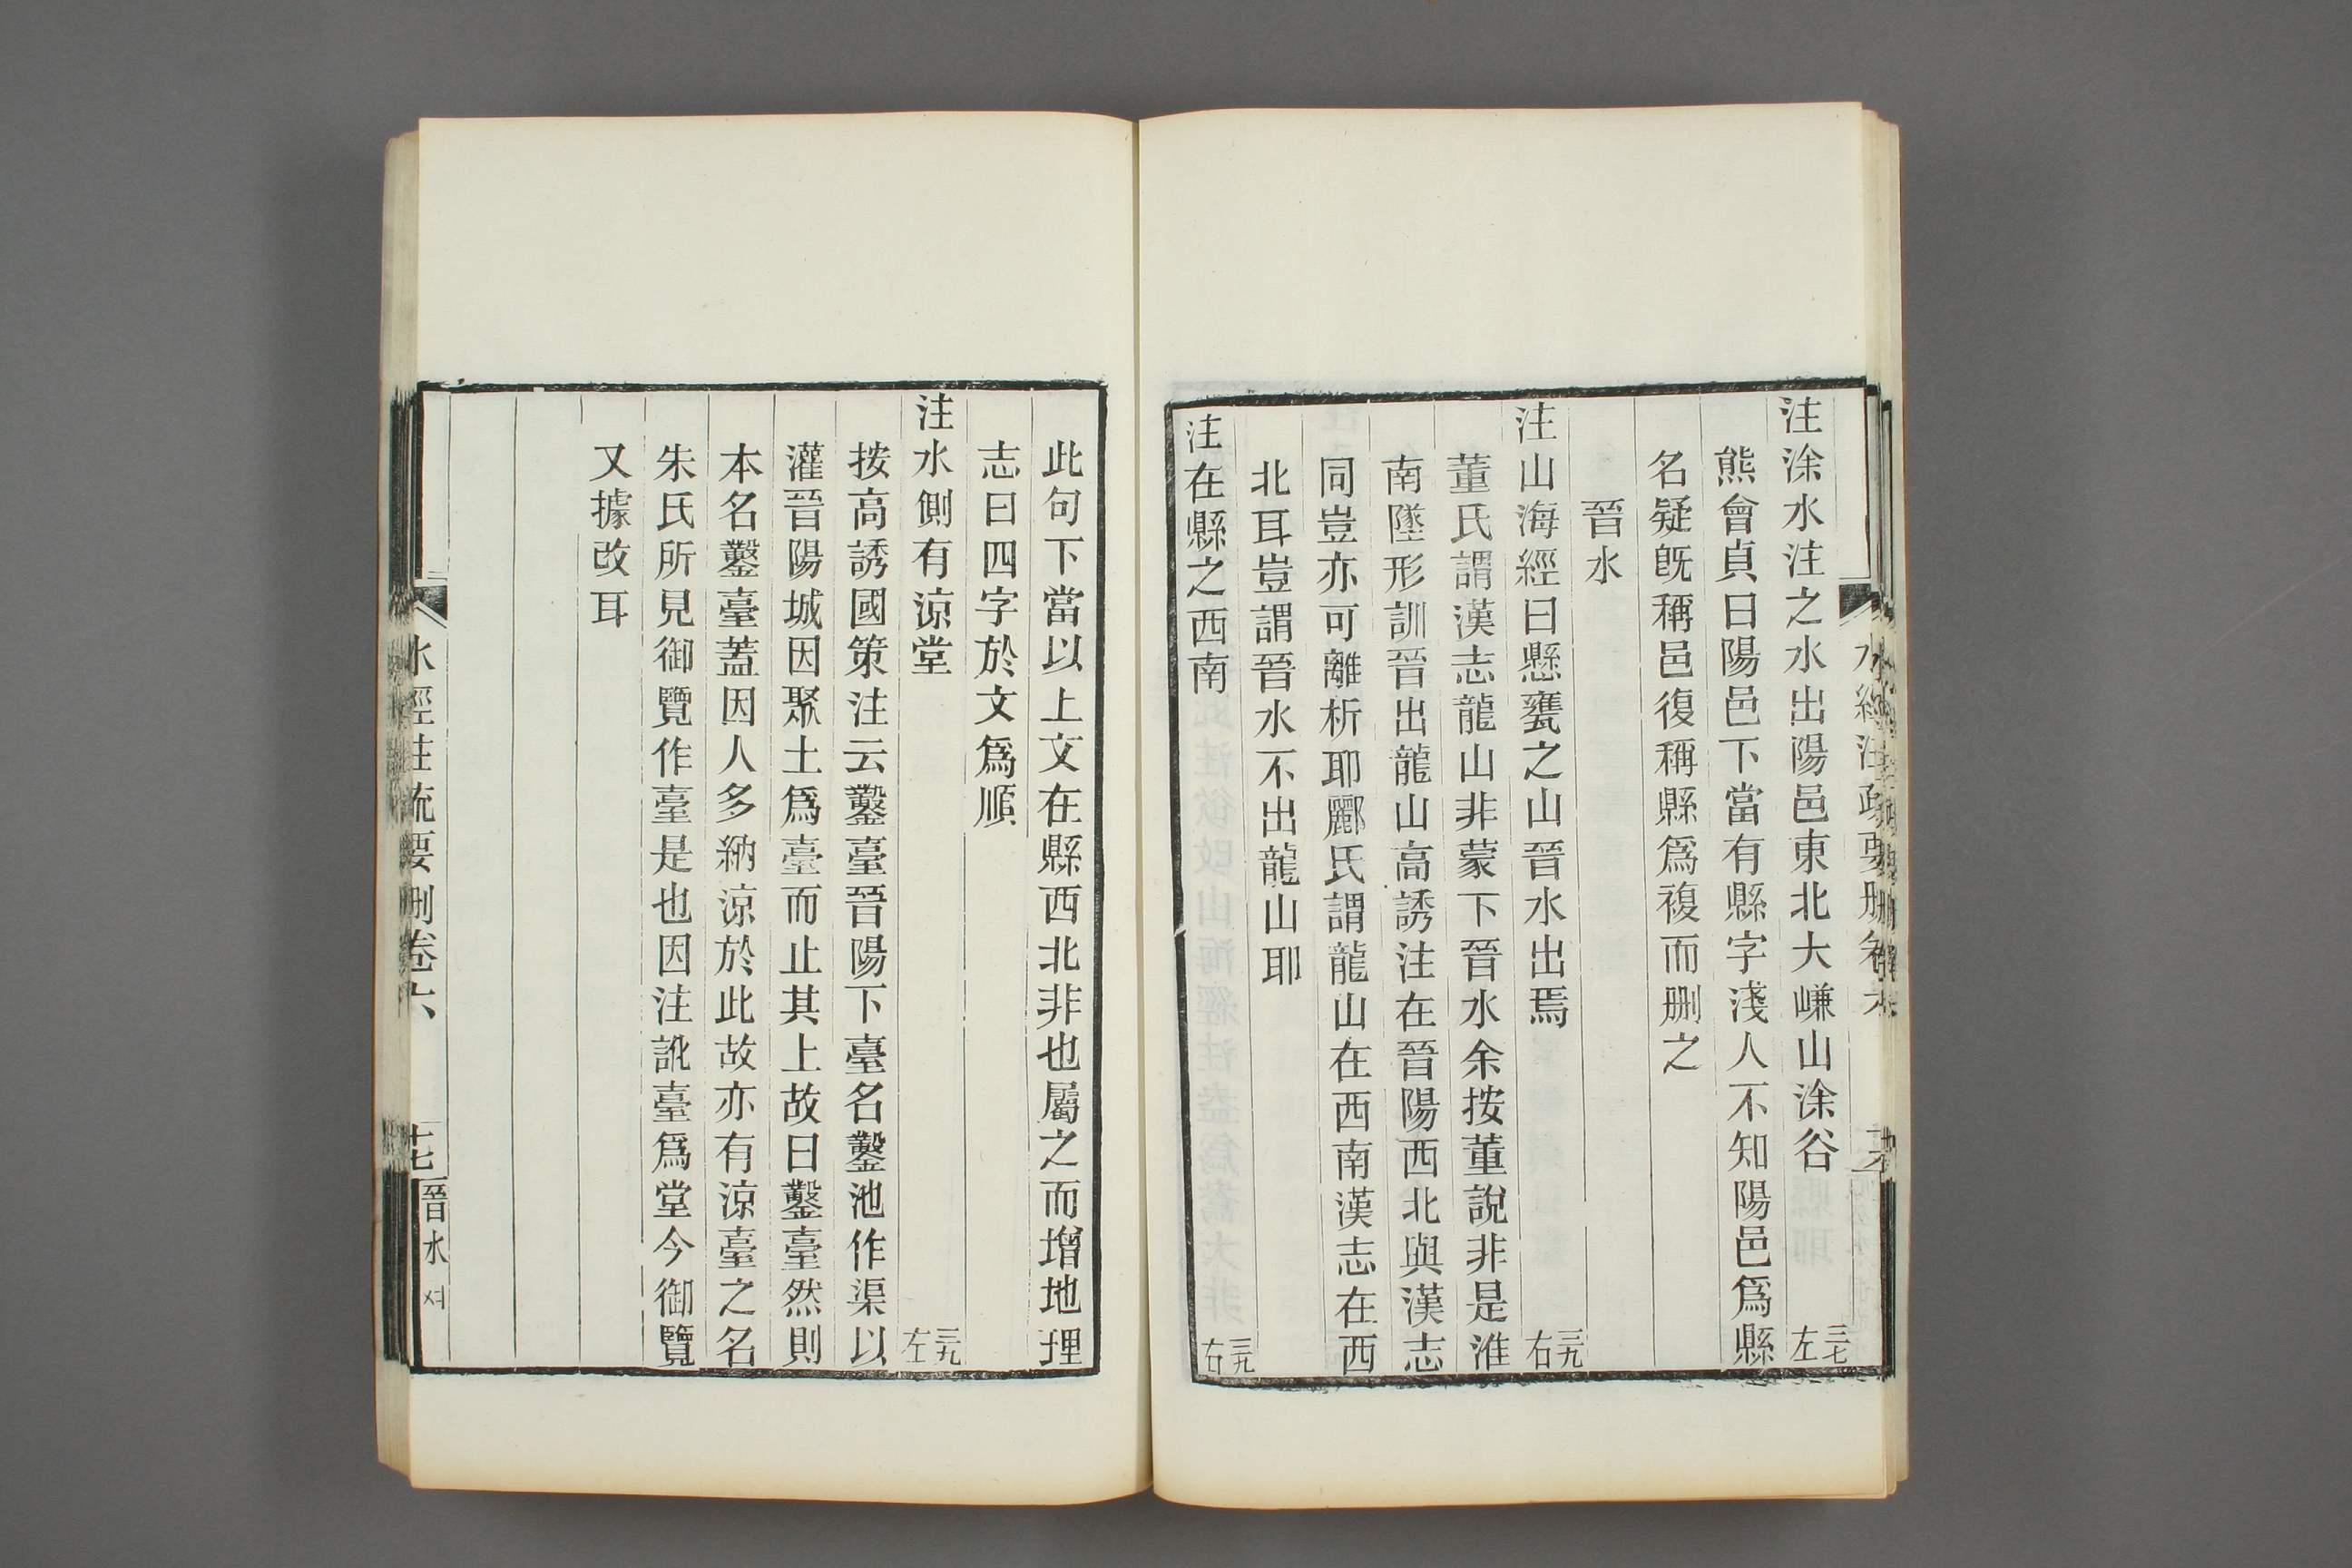 注涂水注之水出陽邑東北大嵰山涂谷 三七左
熊會貞曰陽邑下當有縣字淺人不知陽邑爲縣
名疑旣稱邑復稱縣爲複而刪之
晉水
注山海經曰懸甕之山晉水出焉 三九右
董氏謂漢志龍山非蒙下晉水余按董說非是淮
南墜形訓晉出龍山高誘注在晉陽西北與漢志
同豈亦可離析耶酈氏謂龍山在西南漢志在西
北耳豈謂晉水不出龍山耶
注在縣之西南 三九右
此句下當以上文在縣西北非也屬之而增地理
志曰四字於文爲順
注水側有涼堂 三九左
按高誘國策注云鑿臺晉陽下臺名鑿池作渠以
灌晉陽城因聚土爲臺而止其上故曰鑿臺然則
本名鑿臺蓋因人多納涼於此故亦有涼臺之名
朱氏所見御覽作臺是也因注訛臺爲堂今御覽
又據改耳
水經注疏要刪卷六 十七 晉水